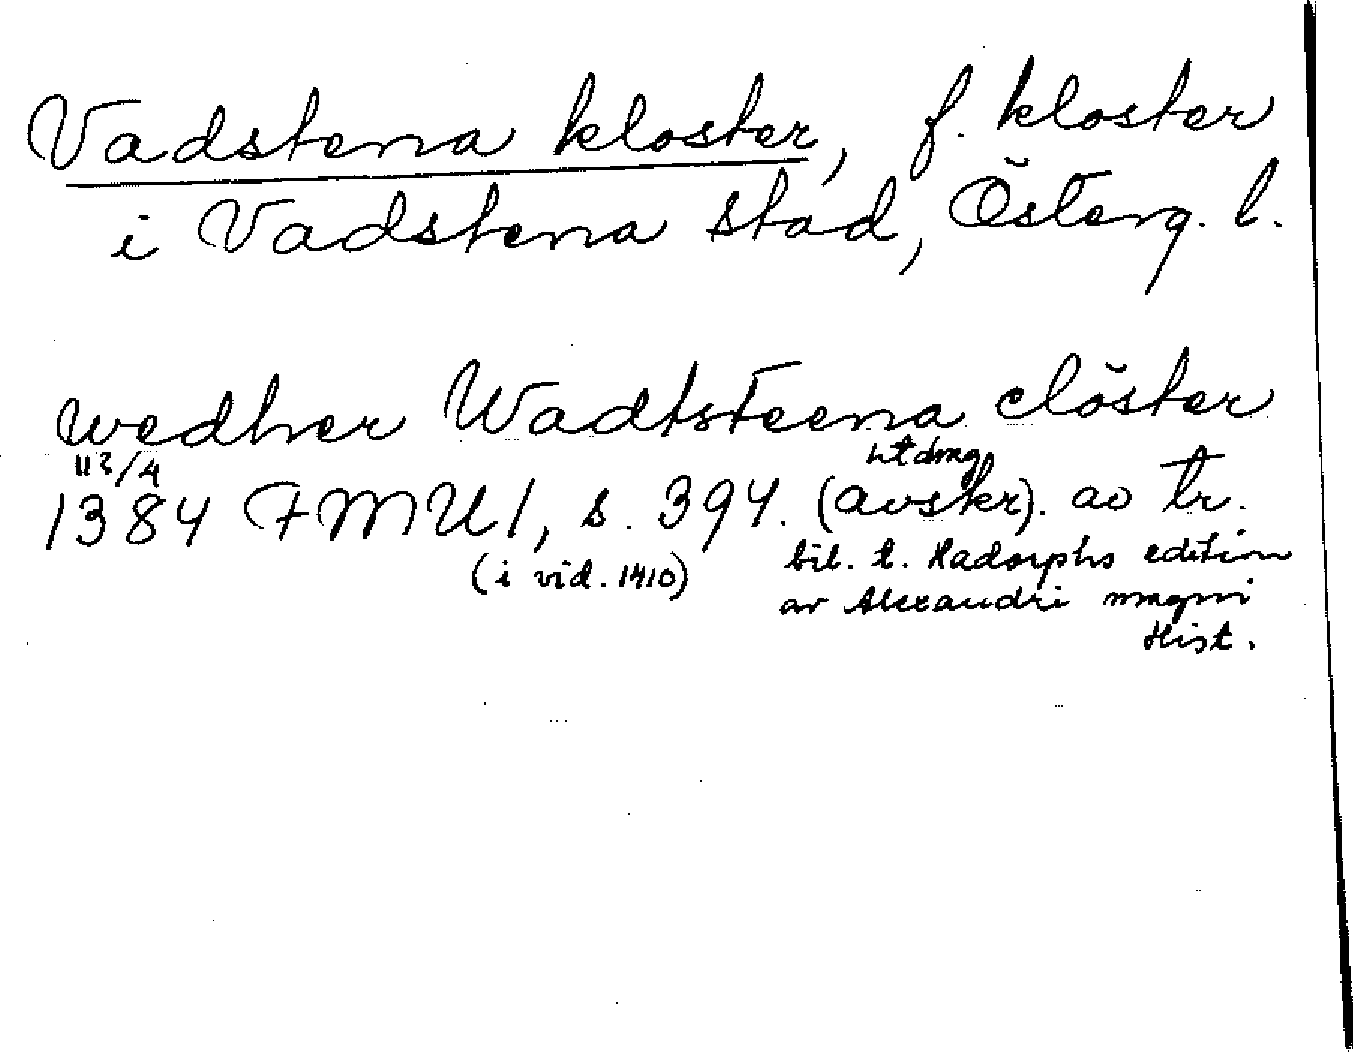 Vadstena kloster, f. kloster
i Vadstena stad, Österg. l.
wedher Wadtsteena clöster
23/4 utdrag
1384 FMU 1, s. 394. (avskr). av tr.
(i vid. 1410) bil. t. Hadorphs edition
av Alexandri magni
Hist.